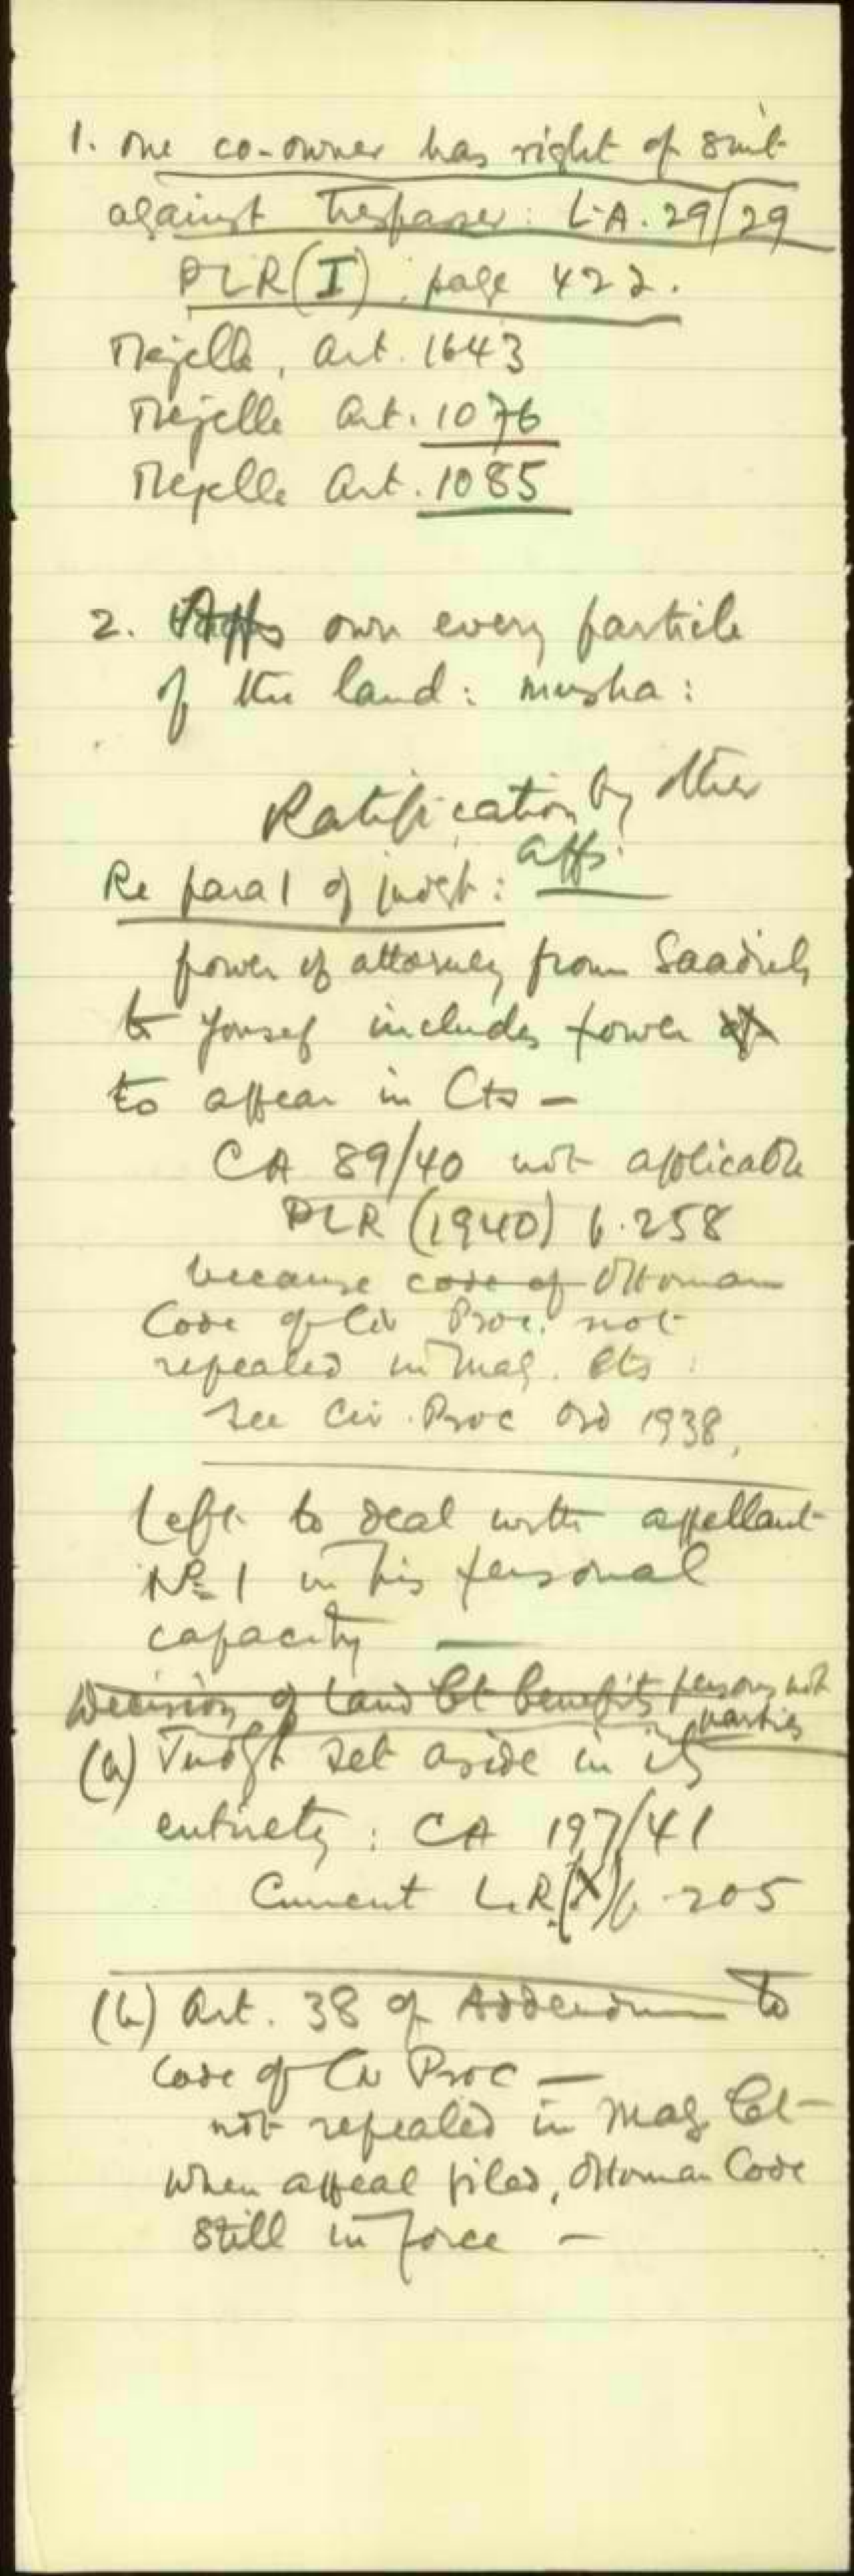 1. One co-owner has right of suit
against trespasser: L.A. 29/29
PLR (I) page 422.
Mejelle, Art. 1643
Mejelle Art. 1076
Mejelle Art. 1085
2. Apps own every particle
of the land: musha:
Ratification by other
Apps.
Re para 1 of judgt:
power of attorney from Saadieh
to Yousef includes power of
to appear in Cts —
CA 89/40 not applicable
PLR (1940) p. 258
because code of Ottoman
Code of Civ Proc. not
repealed in Mag. Cts:
See Civ. Proc Ord 1938.
Left to deal with appellant
No 1 in his personal
capacity —
Decision of Land Ct benefits persons not
parties
(a) Judgt set aside in its
entirety: CA 197/41
Current L.R. p. 205
(b) Art. 38 of Addendum to
Code of Civ Proc —
not repealed in Mag Ct —
When appeal filed, Ottoman Code
still in force —